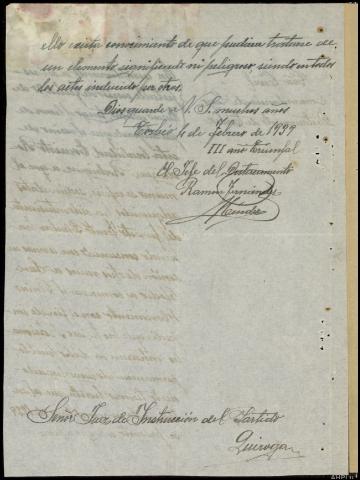 ello exista conocimiento de que pudiera tratarse de
un elemento significado ni peligroso siendo en todos
los actos inducido por otros.
Dios guarde a V. S. muchos años
4 de Febrero de 1939
III año Triunfal
El Jefe del Destacamento
Ramón Fernández
Méndez
Señor Juez de Instrucción del Partido
Quiroga
AHPL